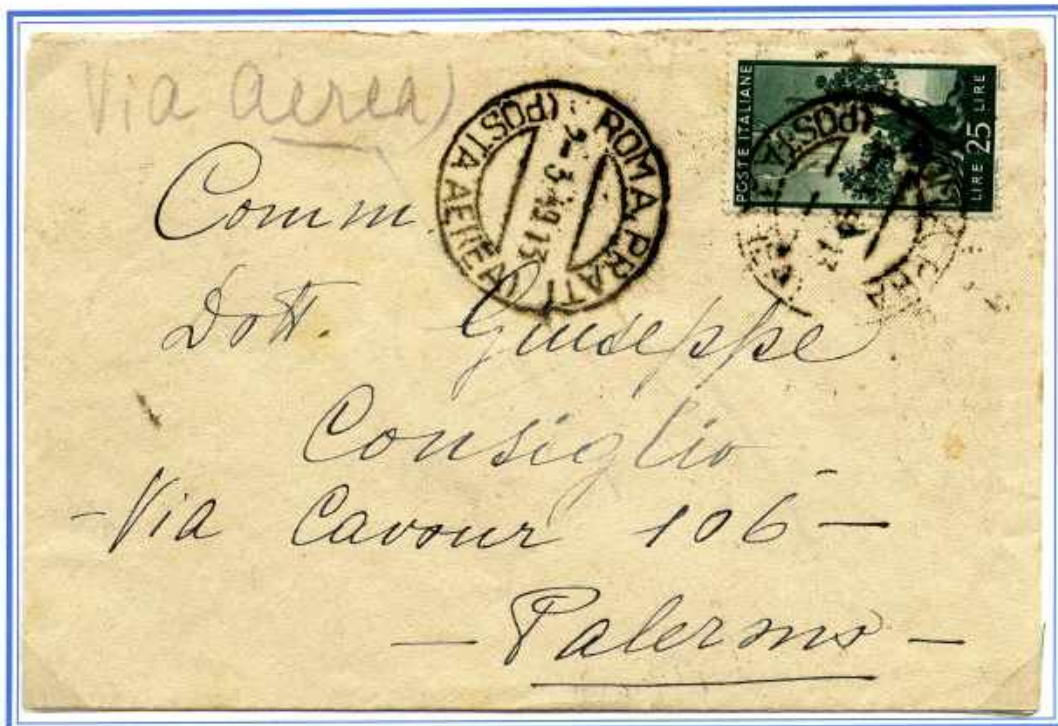 Via aerea
ROMA.PRATI
(POSTA AEREA)
2-3.49.13
POSTE ITALIANE
LIRE 25 LIRE
Comm.
Dott. Giuseppe
Consiglio
- Via Cavour 106 -
- Palermo -